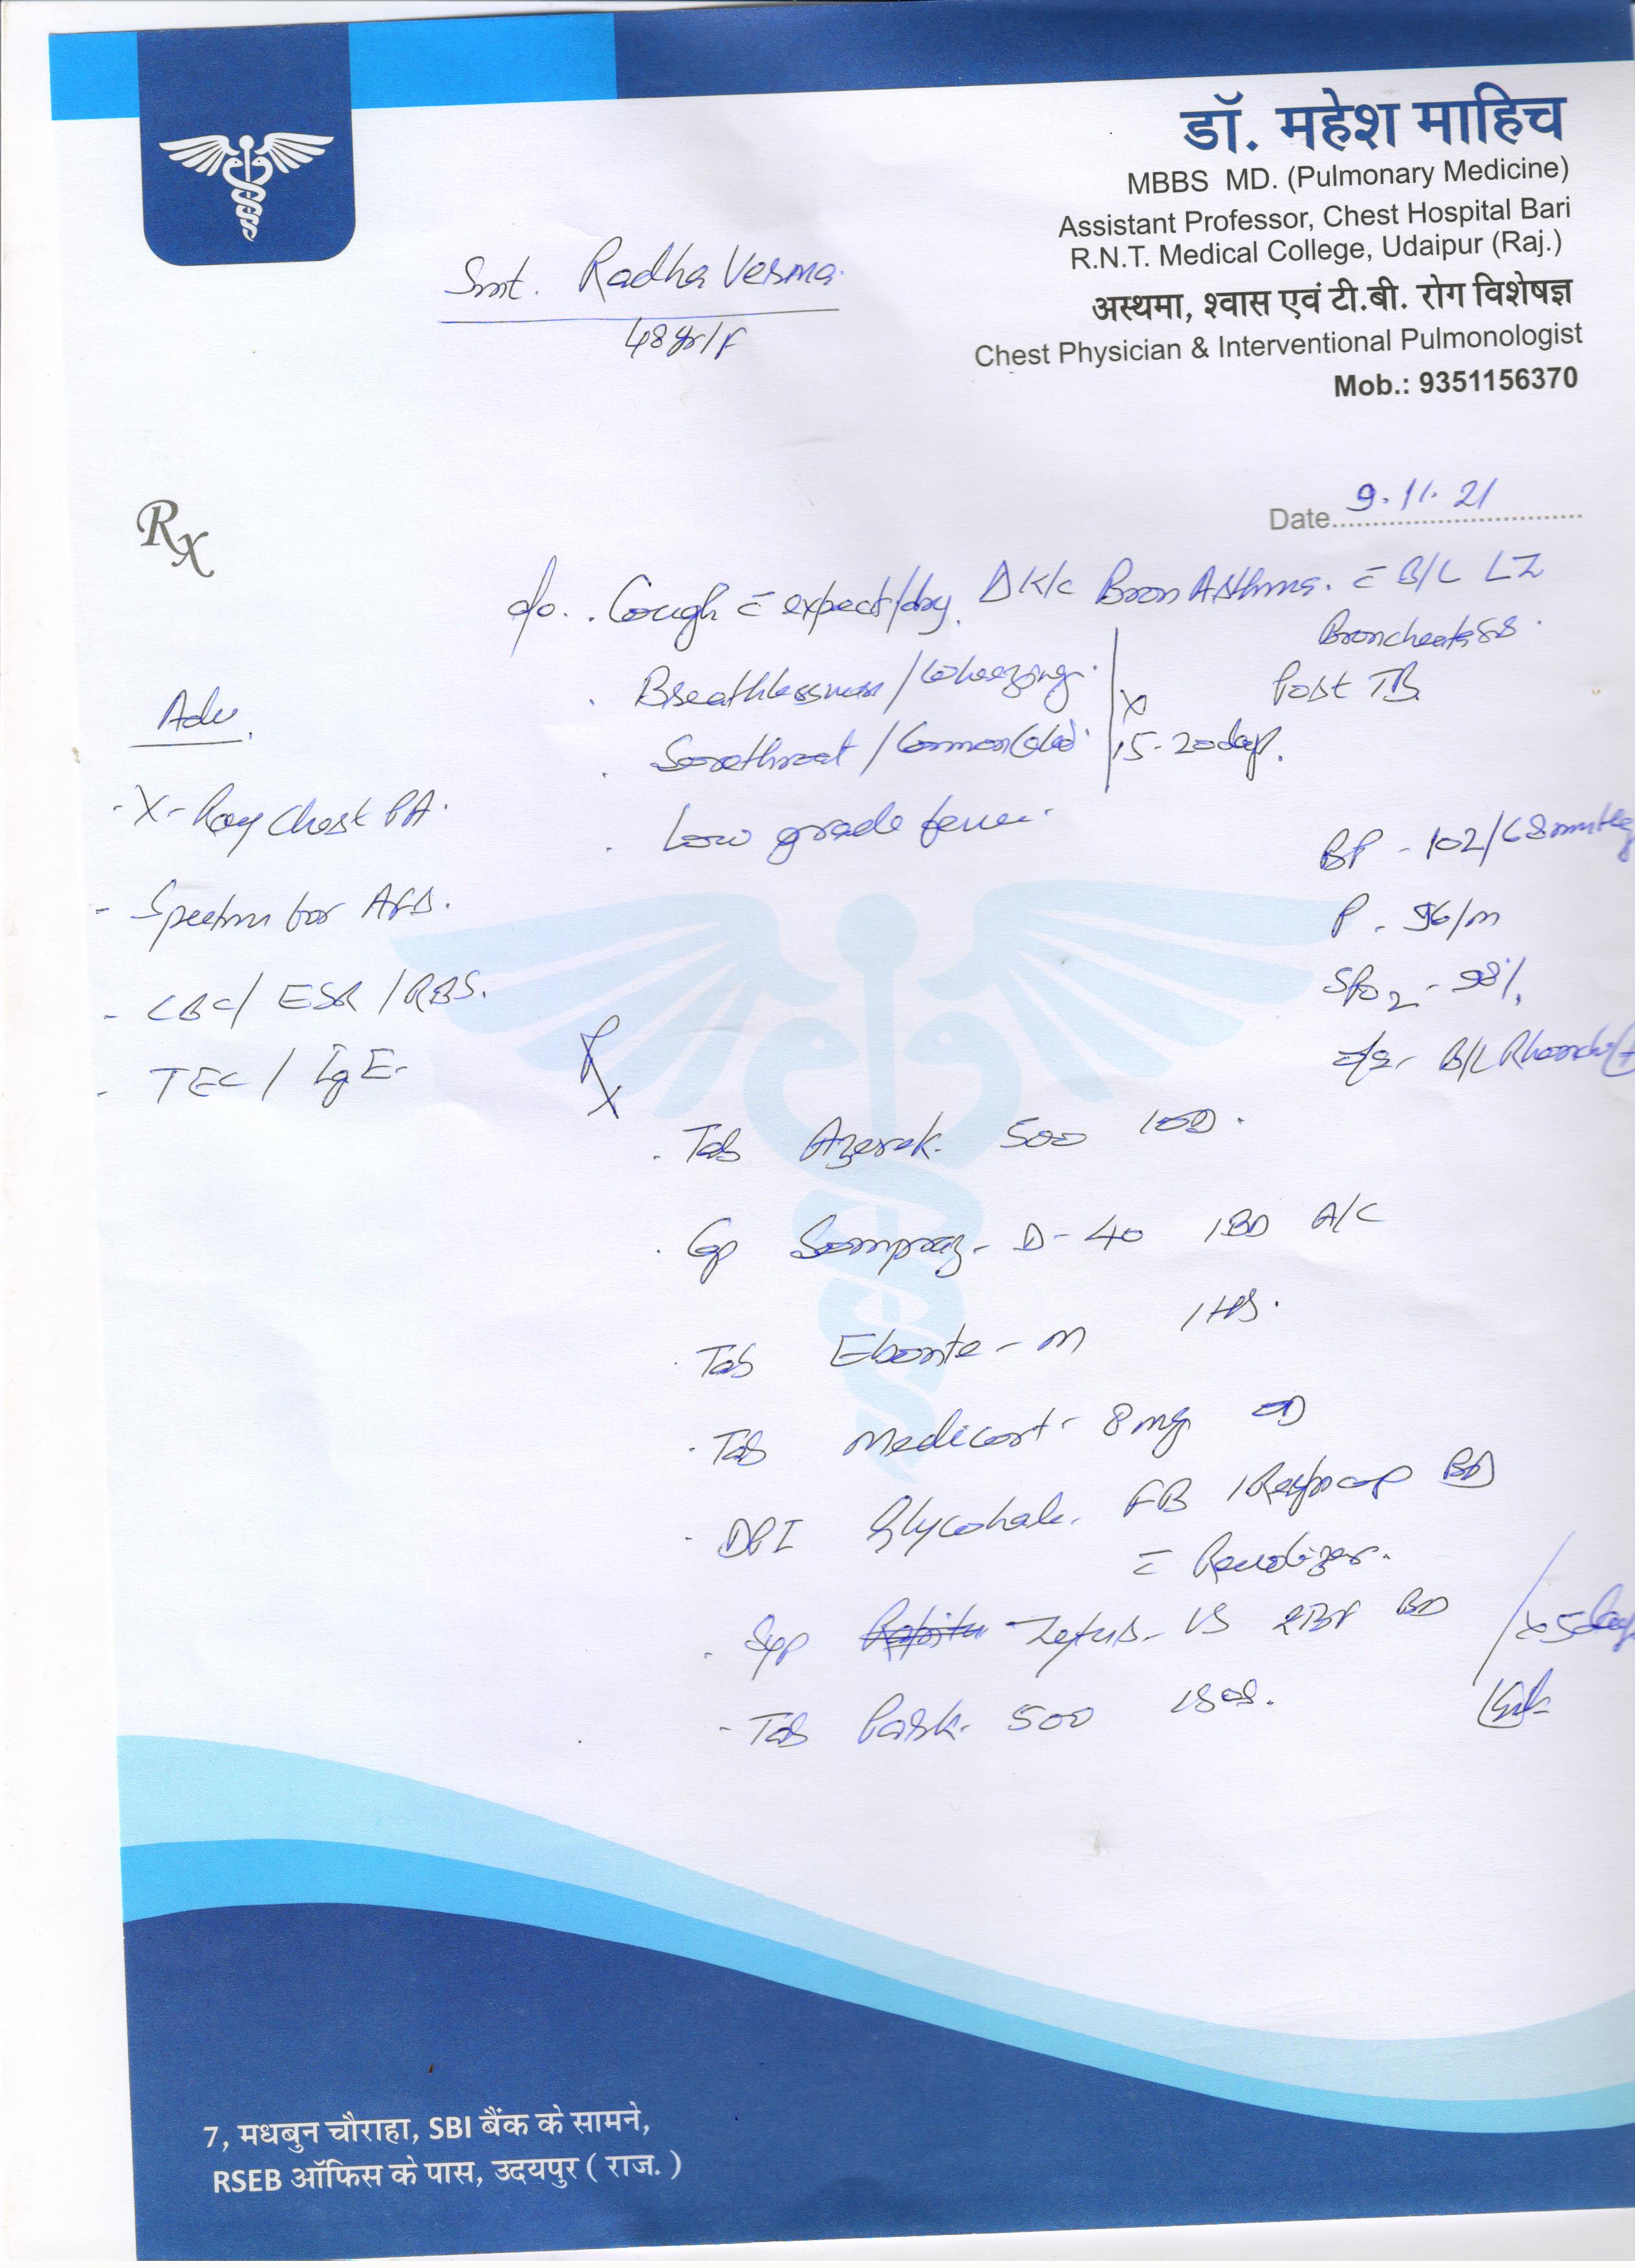 डॉ. महेश माहिच
MBBS MD. (Pulmonary Medicine)
Assistant Professor, Chest Hospital Bari
R.N.T. Medical College, Udaipur (Raj.)
अस्थमा, श्वास एवं टी.बी. रोग विशेषज्ञ
Chest Physician & Interventional Pulmonologist
Mob.: 9351156370
Smt. Radha Verma.
48yr/F
Rx
Date 9.11.21
c/o. . Cough = expect/dry. Δ K/c Bron Asthma. = B/L LZ
. Breathlessness / Wheezing.
Post TB
x
. Sorethroat / Common Cold. 15-20 days.
. Low grade fever.
Adv.
- X-Ray Chest PA.
- for AFB.
- CBC/ ESR / RBS.
- TEC / IgE-
BP - 102/68 mmHg
P - 96/m
SPO2 - 98%
B/L Rhonchi
Rx
. Tab 500 1OD.
. Cap Sompraz- D-40 1BD A/C
. Tab Ebonte-M 1HS.
. Tab Medicort- 8mg OD
. DPI Glycohale. FB 1Respicap BD
= Revolizer.
. Syp BD x 5 days
- Tab 500 1SOS.
7, मधुबन चौराहा, SBI बैंक के सामने,
RSEB ऑफिस के पास, उदयपुर ( राज. )